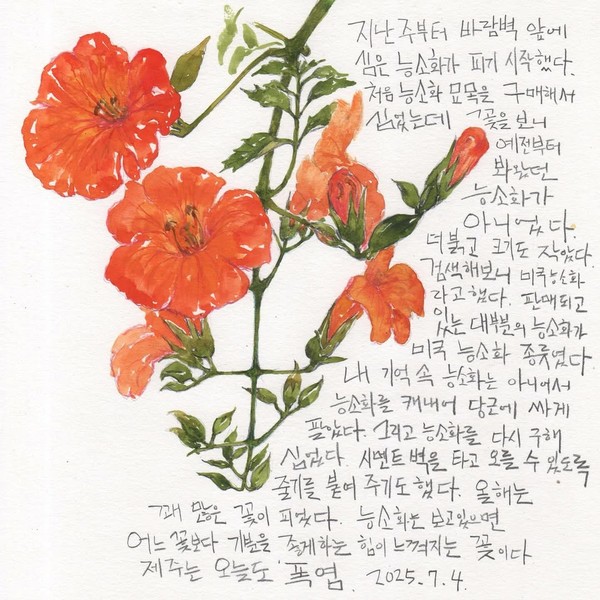 지난주부터 바람벽 앞에
심은 능소화가 피기 시작했다.
처음 능소화 묘목을 구매해서
심었는데 꽃을 보니
예전부터
봐왔던
능소화가
아니었다.
더 붉고 크기도 작았다.
검색해보니 미국능소화
라고 했다. 판매되고
있는 대부분의 능소화가
미국 능소화 종류였다
내 기억 속 능소화는 아니어서
능소화를 캐내어 당근에 싸게
팔았다. 그리고 능소화를 다시 구해
심었다. 시멘트 벽을 타고 오를 수 있도록
줄기를 붙여 주기도 했다. 올해는
꽤 많은 꽃이 피었다. 능소화는 보고있으면
어느 꽃보다 기분을 좋게하는 힘이 느껴지는 꽃이다
제주는 오늘도 폭염. 2025.7.4.